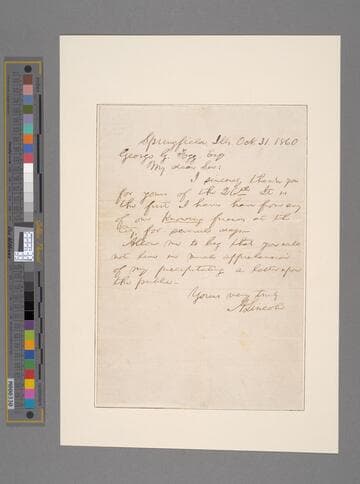 Springfield, Ills. Oct. 31. 1860
George G. Fogg Esq
My dear Sir:
I sincerely thank you
for yours of the 26th. It is
the first I have have from any
of our knowing friends at the
City for several days.
Allow me to beg that you will
not have so much apprehension
of my precipitating a letter upon
the public.
Yours very truly
A. Lincoln